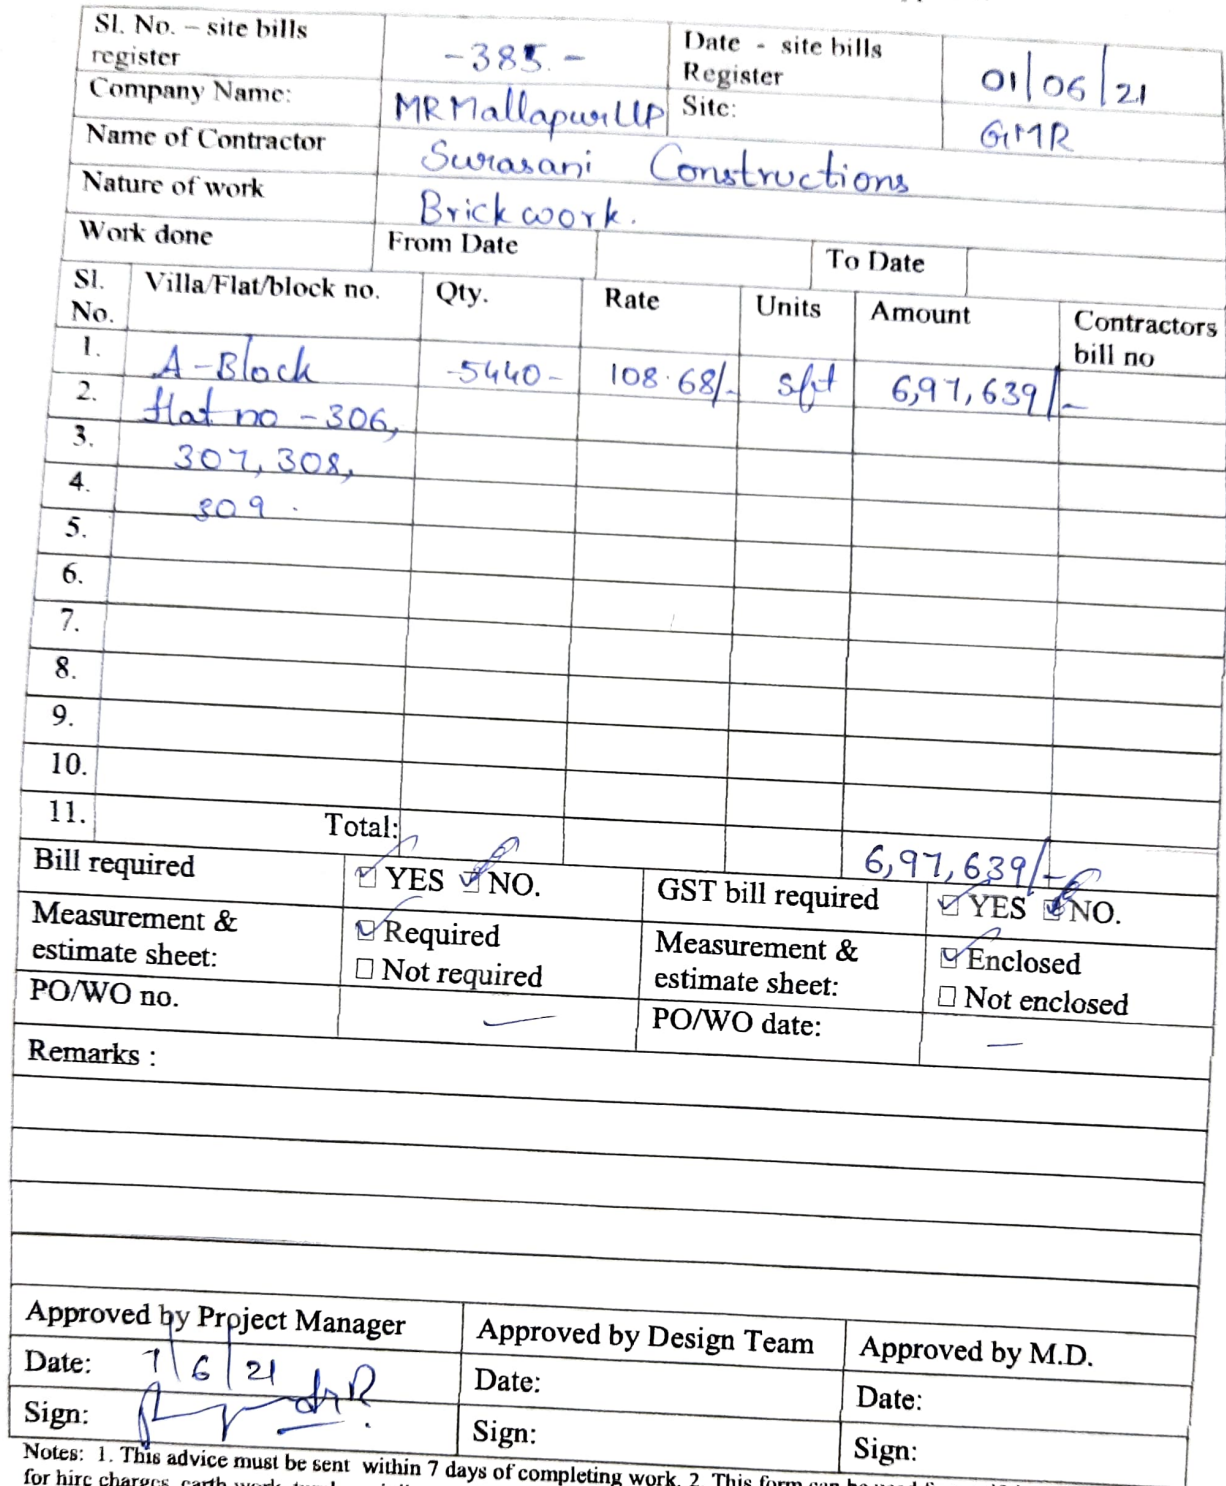 Sl. No. – site bills register -385.- Date - site bills Register 01/06/21
Company Name: MR Mallapur LLP Site: GMR
Name of Contractor Surasani Constructions
Nature of work Brick work.
Work done From Date To Date
Sl. No. Villa/Flat/block no. Qty. Rate Units Amount Contractors bill no
1. A-Block -5440- 108.68/- sft 6,97,639/-
2. flat no -306,
3. 307, 308,
4. 309.
5.
6.
7.
8.
9.
10.
11. Total: 6,97,639/-
Bill required ☑ YES ☑ NO. GST bill required ☑ YES ☑ NO.
Measurement & estimate sheet: ☑ Required Measurement & estimate sheet: ☑ Enclosed
☐ Not required ☐ Not enclosed
PO/WO no. — PO/WO date: —
Remarks :
Approved by Project Manager Approved by Design Team Approved by M.D.
Date: 7/6/21 Date: Date:
Sign: Sign: Sign:
Notes: 1. This advice must be sent within 7 days of completing work. 2. This form can be used
for hire charges, earth work,